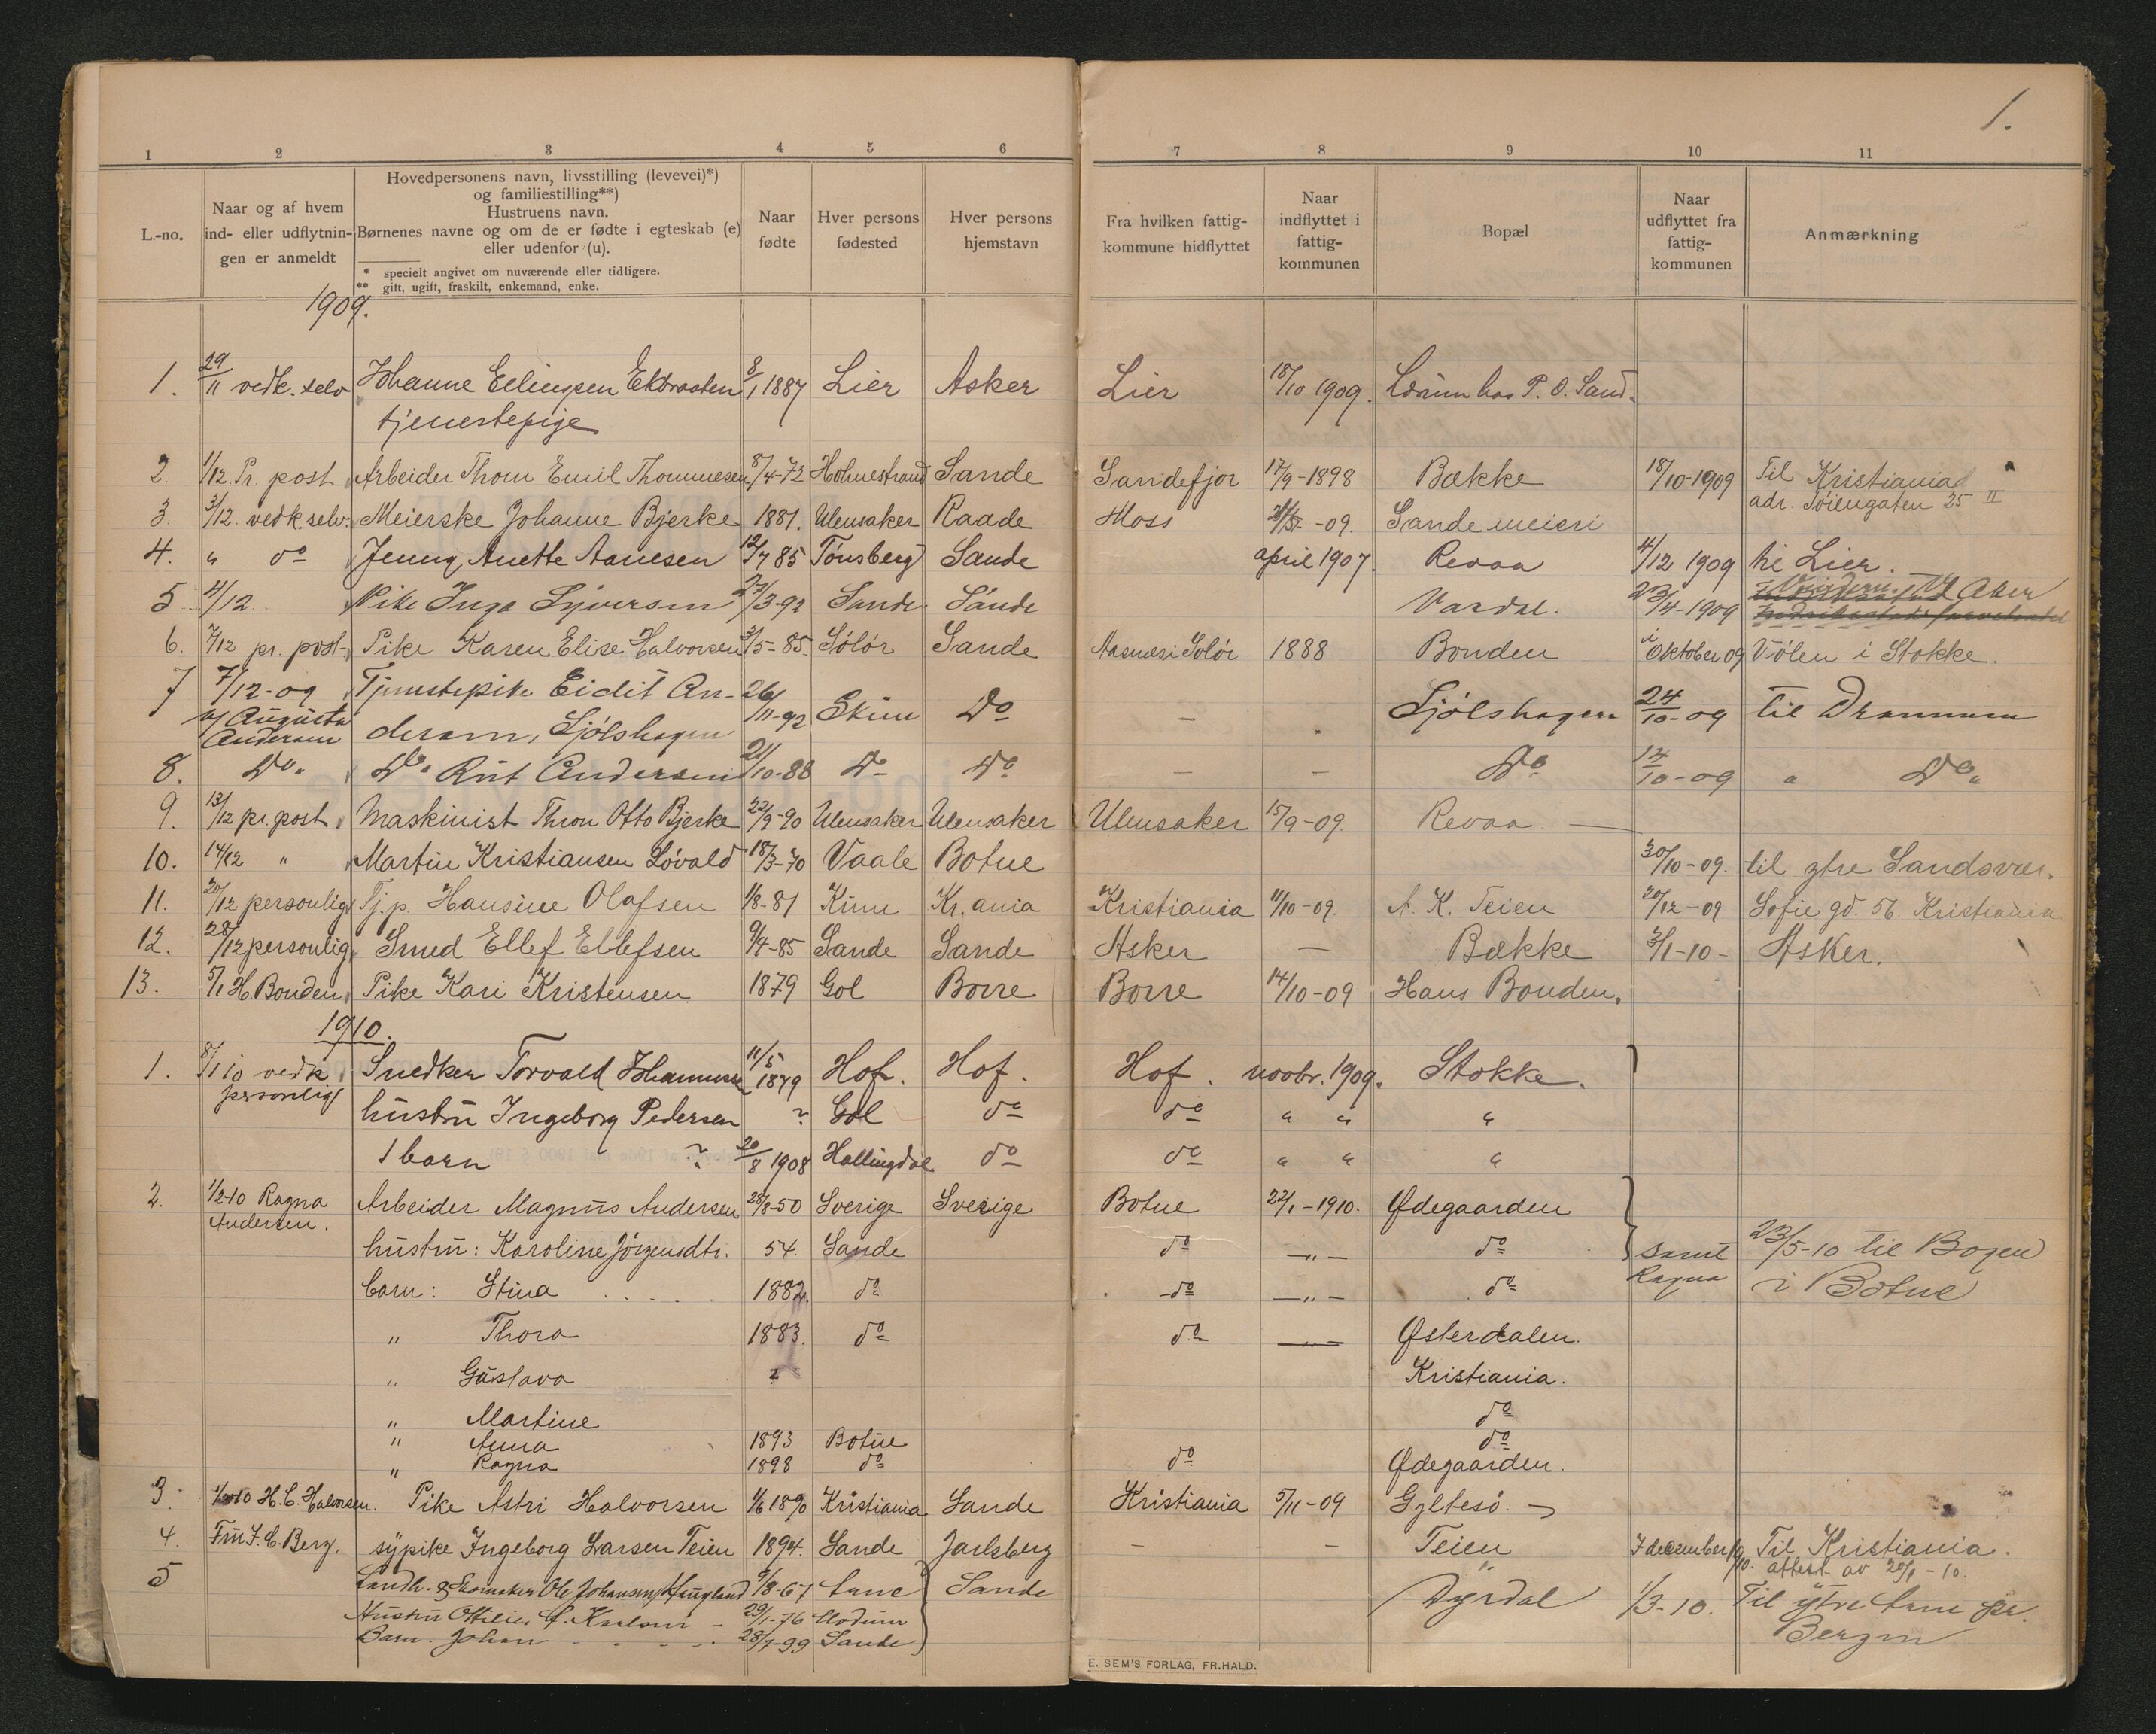 1.
1 2 3 4 5 6 7 8 9 10 11
L.-no.
Naar og af hvem
ind- eller udflytnin-
gen er anmeldt
Hovedpersonens navn, livsstilling (levevei)*)
og familiestilling**)
Hustruens navn.
Børnenes navne og om de er fødte i egteskab (e)
eller udenfor (u).
* specielt angivet om nuværende eller tidligere.
** gift, ugift, fraskilt, enkemand, enke.
Naar
fødte
Hver persons
fødested
Hver persons
hjemstavn
Fra hvilken fattig-
kommune hidflyttet
Naar
indflyttet i
fattig-
kommunen
Bopæl
Naar
udflyttet fra
fattig-
kommunen
Anmærkning
1909.
1. 29/11 vedk. selv Johanne Ellingsen 8/1 1887 Lier Asker Lier 18/10 1909. hos P. O. Sand.
tjenestepige
2. 1/12 Pr. post Arbeider Thom Emil Thommesen 8/4-72 Holmestrand Sande Sandefjor 17/9-1898 Bække 18/10-1909 Til Kristiania
adr. Tóiengaten 35 II
3. 3/12. vedk. selv. Meierske Johanne Bjerke 1881. Ulensaker Raade Moss -09. Sande meieri
4. " do Jenny Anette Aanesen 12/7 85 Tónsberg Sande april 1907. Revaa 4/12 1909 til Lier.
5 4/12 Pike Inga Syversen 27/3-92 Sande Sande Vardal. 23/4-1909 Aker
6. 7/12 pr. post- Pike Karen Elise Halvorsen 3/5-85. Sólór Sande Aasnæs i Solór 1888 Bonden i Oktober 09 Vólen i Stokke.
7 7/12-09 Tjenestepike Eidit An- 26/11-92 Skien Do - Sjólshagen 24/10-09 til Drammen
a/ Augusta dersen, Sjólshagen
Andersen
8. Do. Do. Rut Andersen 21/10-88 Do Do - - Do 14/10-09 " Do.
9. 13/12 pr. post Maskinist Thron Otto Bjerke 22/9-90 Ulensaker Ulensaker Ulensaker 15/9-09. Revaa
10. 14/12 " Martin Kristiansen Lóvald 18/3-70 Vaale Botne 30/10-09. til ytre Sandsvær.
11. 20/12 personlig Tj.p. Hansine Olafsen 1/8-81 Kr.ania Kristiania 11/10-09. A. K. Teien 20/12-09 Sofie gd. 56. Kristiania
12. 28/12 personlig Smed Ellef Ellefsen 9/4-85 Sande Sande Asker — Bække 3/1-10- Asker.
13. 5/1 H. Bonden Pike Kari Kristensen 1879 Gol Borre Borre 14/10-09 Hans Bonden.
1910.
1. 8/1 10 vedk. Snedker Torvald Johannesen 11/5 1879 Hof. Hof. Hof. novbr. 1909. Stokke.
personlig
hustru Ingeborg Pedersen ? Gol do do " " "
1 barn ? 20/8 1908 Hallingdal do do " " "
2. 1/2-10 Ragna Arbeider Magnus Andersen 28/8-50 Sverige Sverige Botne 22/1-1910. Ødegaarden
Andersen.
hustru: Karoline Jörgensdtr. 54. Sande do —„— do samt 23/5-10 til Bogen
Ragna i Botne
barn: Stina 1882. do do —„— do
" Thora 1883. do do — Østerdalen.
" Gustava ? Kristiania.
" Martine do
" Anna 1893 Botne do
" Ragna 1898 do do Ødegaarden.
3. H. C. Halvorsen. Pike Astri Halvorsen 1/6 1890 Kristiania Sande Kristiania 5/11-09 Gyltesó.
4. Fru J. C. Berg. sypike Ingeborg Larsen Teien 1894. Sande Jarlsberg - - Teien 7 december Til Kristiania.
attest av 20/1-10.
5 Ole Johansen Haugland 9/8-67 Sande Dyrdal 1/3-10. Til ytre pr.
Bergen
Hustru Ottilie C. Karlsen 29/1-76 Modum
Barn. Johan 28/7-99 Sande
E. SEM'S FORLAG, FR.HALD.